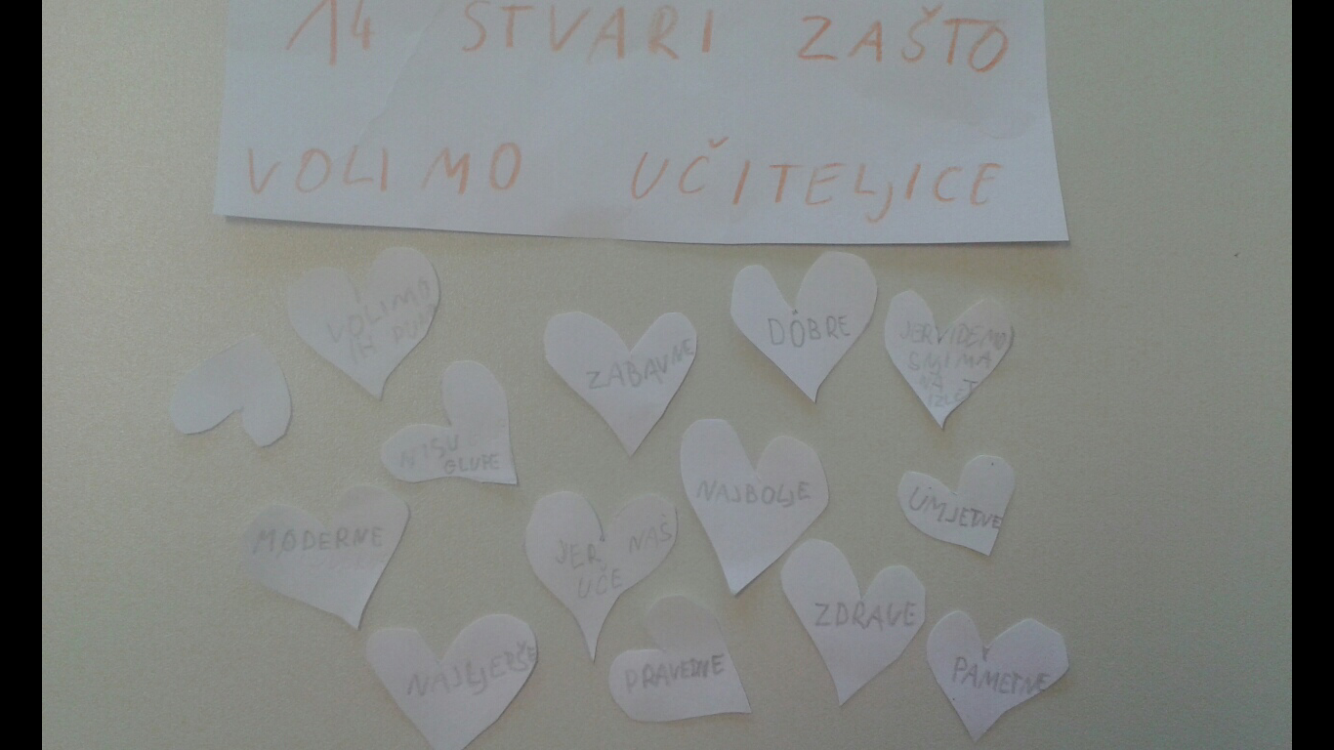 14 STVARI ZAŠTO
VOLIMO UČITELJICE
VOLIMO
IH PUNO
ZABAVNE
DOBRE
JER IDEMO
S NJIMA
NA
IZLET
NISU
GLUPE
NAJBOLJE
UMJETNE
MODERNE
JER NAŠ
UČE
ZDRAVE
NAJLJEPŠE
PRAVEDNE
PAMETNE